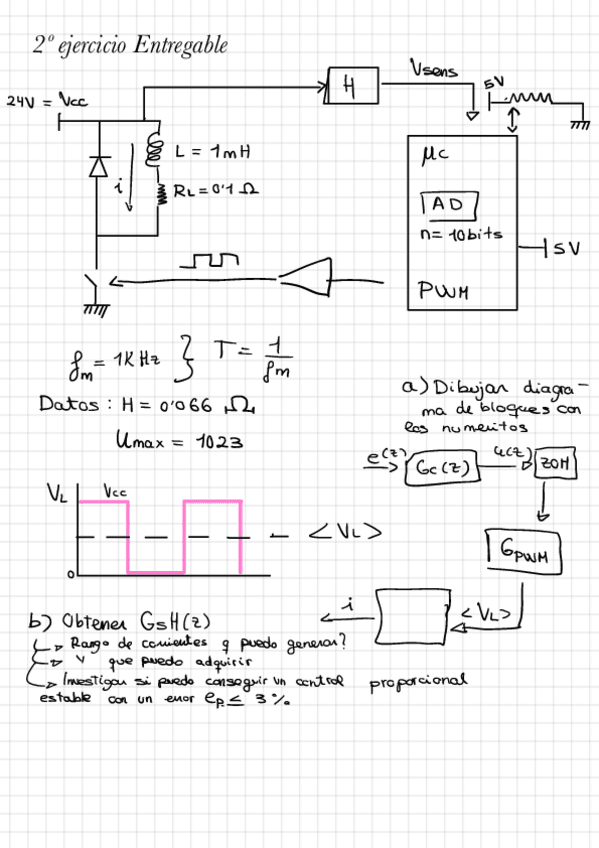 2º ejercicio Entregable
H
Vsens
5V
24V = Vcc
L = 1mH
i
RL = 0'1 Ω
μc
AD
n= 10bits
5V
PWM
fm = 1KHz } T = 1/fm
Datos : H = 0'066 Ω
Umax = 1023
a) Dibujar diagra-
ma de bloques con
los numeritos
e(z)
Gc(z)
u(z)
ZOH
VL
Vcc
<VL>
0
GPWM
i
<VL>
b) Obtener GsH(z)
↳ Rango de corrientes q puedo generar?
↳ " que puedo adquirir
↳ Investigar si puedo conseguir un control proporcional
estable con un error ep ≤ 3%